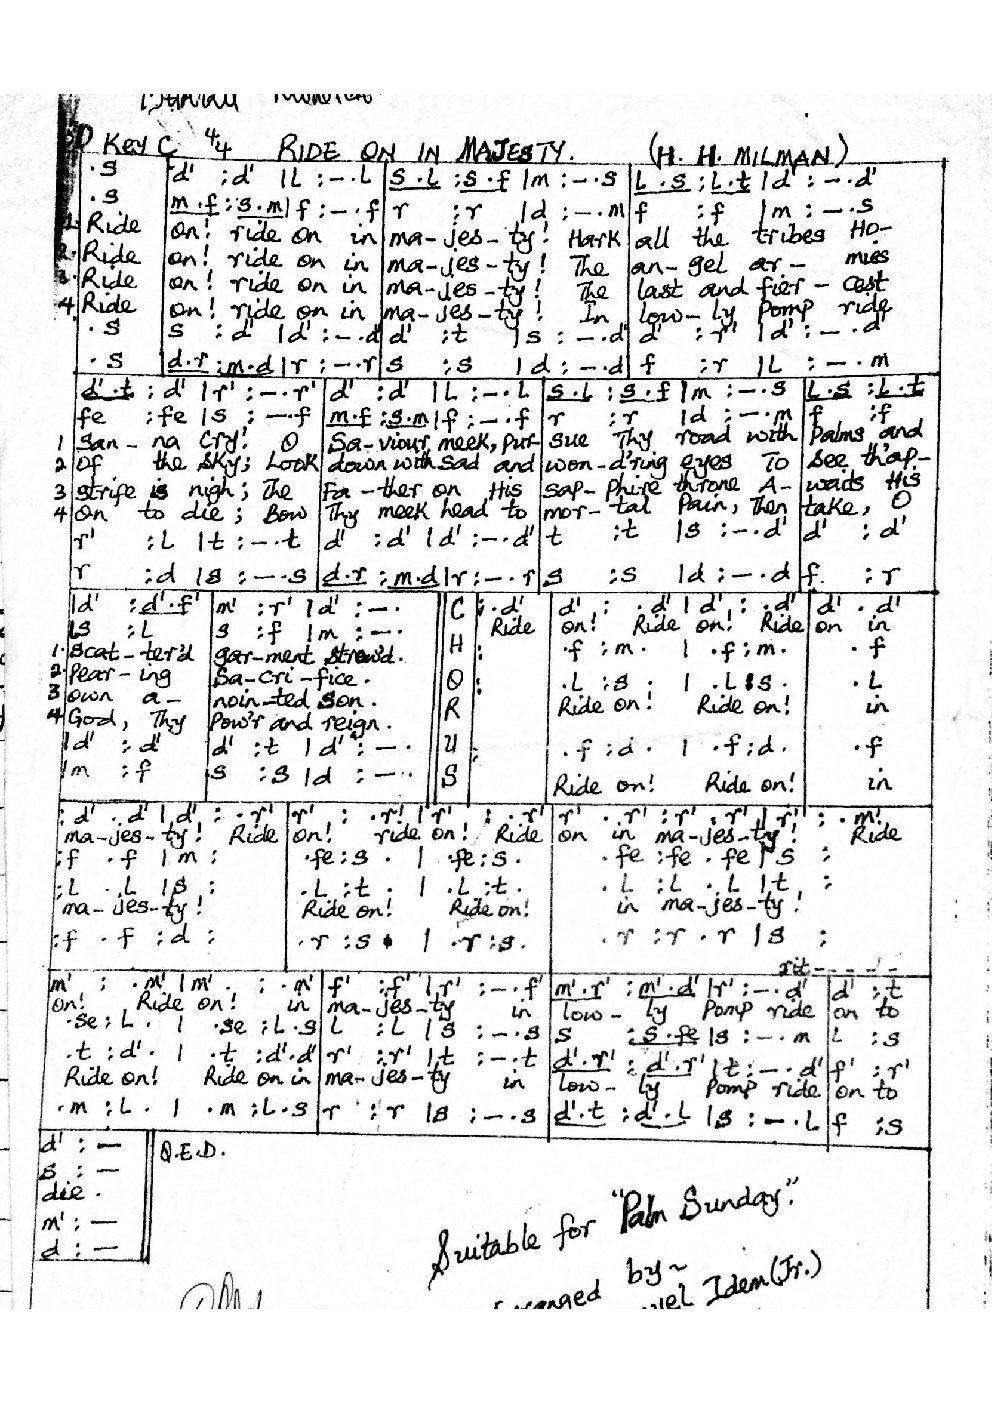 Key C 4/4 RIDE ON IN MAJESTY. (H. H. MILMAN)
.S |d' :d' |L :-.L |S.L :S.f |m :-.S |L.S :L.t |d' :-.d'
.S |m.f :s.m |f :-.f |r :r |d :-.m |f :f |m :-.s
1. Ride on! ride on in ma-jes-ty! Hark all the tribes Ho-
2. Ride on! ride on in ma-jes-ty! The an-gel ar- mies
3. Ride on! ride on in ma-jes-ty! The last and fier-cest
4. Ride on! ride on in ma-jes-ty! In low-ly Pomp ride
.S |s :d' |d' :-.d |d' :t |s :-.d' |d' :r' |d' :-.d'
.S |d.r :m.d |r :-.r |s :s |d :-.d |f :r |L :-.m
d'.t :d' |r' :-.r' |d' :d' |L :-.L |s.L :s.f |m :-.s |L.s :L.t
fe :fe |s :-.f |m.f :s.m |f :-.f |r :r |d :-.m |f :f
1 San-na cry! O Sa-viour, meek, pur-sue Thy road with Palms and
2 Of the sky; Look down with sad and won-d'ring eyes To See th'ap-
3 strife is nigh; The Fa-ther on His sap-phire throne A-waits His
4 On to die; Bow Thy meek head to mor-tal Pain, Then take, O
r' :L |t :-.t |d' :d' |d' :-.d' |t :t |s :-.d' |d' :d'
r :d |s :-.s |d.r :m.d |r :-.r |s :s |d :-.d |f :r
|d' :d'.f' |m' :r' |d' :-. C :.d' |d' : .d' |d' : .d' |d' .d'
Ride on! Ride on! Ride on in
|s :L |s :f |m :-. H : .f :m. | .f :m. .f
1. Scat-ter'd gar-ment strew'd.
2. Pear-ing Sa-cri-fice. O : .L :s. | .L :s. .L
3 own a- noin-ted Son. R Ride on! Ride on! in
4 God, Thy Pow'r and reign.
|d' :d' |d' :t |d' :-. U : .f :d. | .f :d. .f
|m :f |s :s |d :-. S Ride on! Ride on! in
:d' .d' |d' : .r' |r' : .r' |r' : .r' |r' .r' :r' .r' |r' : .m'
ma-jes-ty! Ride on! ride on! Ride on in ma-jes-ty! Ride
:f .f |m : .fe :s. | .fe :s. .fe :fe .fe |s :
:L .L |s : .L :t. | .L :t. .L :L .L |t :
ma-jes-ty! Ride on! Ride on! in ma-jes-ty!
:f .f :d : .r :s | .r :s. .r :r .r |s :
rit-----
m' : .m' |m' : .m' |f' :f' |r' :-.f' |m'.r' :m'.d' |r' :-.d' |d' :t
on! Ride on! in ma-jes-ty in low-ly Pomp ride on to
.se :L. | .se :L.s |L :L |s :-.s |s :s.fe |s :-.m |L :s
.t :d'. | .t :d'.d' |r' :r' |t :-.t |d'.r' :d'.r' |t :-.d' |f' :r'
Ride on! Ride on in ma-jes-ty in low-ly Pomp ride on to
.m :L. | .m :L.s |r :r |s :-.s |d'.t :d'.L |s :-.L |f :s
d' :- Q.E.D.
s :-
die.
m' :-
d :-
Suitable for "Palm Sunday".
by~
Idem (Jr.)